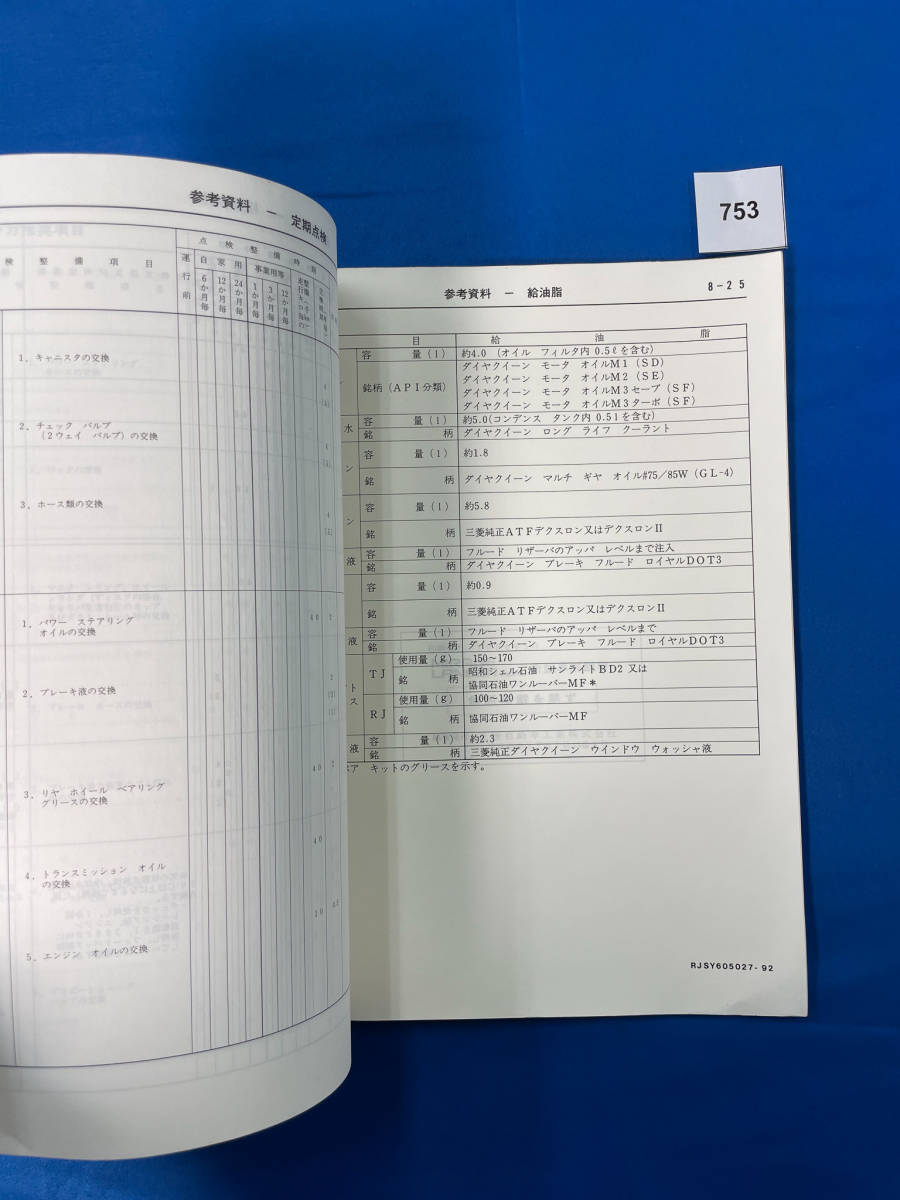 753
参考資料 － 定期点検
点検整備時期
検 整備項目
運行前
自家用
事業用等
6か月毎
12か月毎
24か月毎
1か月毎
3か月毎
12か月毎
1．キャニスタの交換
2．チェック バルブ
（2ウェイ バルブ）の交換
3．ホース類の交換
1．パワー ステアリング
オイルの交換
40 2
2．ブレーキ液の交換
3．リヤ ホイール ベアリング
グリースの交換
40 2
4．トランスミッション オイル
の交換
40
5．エンジン オイルの交換
参考資料 － 給油脂
8-25
目 給油脂
容量（l） 約4.0 （オイル フィルタ内 0.5ℓを含む）
銘柄（API分類） ダイヤクイーン モータ オイルM1（SD）
ダイヤクイーン モータ オイルM2（SE）
ダイヤクイーン モータ オイルM3セーブ（SF）
ダイヤクイーン モータ オイルM3ターボ（SF）
水 容量（l） 約5.0(コンデンス タンク内 0.5lを含む)
銘柄 ダイヤクイーン ロング ライフ クーラント
ン 容量（l） 約1.8
銘柄 ダイヤクイーン マルチ ギヤ オイル#75／85W（GL-4）
ン 容量（l） 約5.8
銘柄 三菱純正ATFデクスロン又はデクスロンII
液 容量（l） フルード リザーバのアッパ レベルまで注入
銘柄 ダイヤクイーン ブレーキ フルード ロイヤルDOT3
容量（l） 約0.9
銘柄 三菱純正ATFデクスロン又はデクスロンII
液 容量（l） フルード リザーバのアッパ レベルまで
銘柄 ダイヤクイーン ブレーキ フルード ロイヤルDOT3
トス TJ 使用量（g） 150～170
銘柄 昭和シェル石油 サンライトBD2 又は
協同石油ワンルーバーMF＊
RJ 使用量（g） 100～120
銘柄 協同石油ワンルーバーMF
液 容量（l） 約2.3
銘柄 三菱純正ダイヤクイーン ウインドウ ウォッシャ液
ペア キットのグリースを示す。
RJSY605027-92